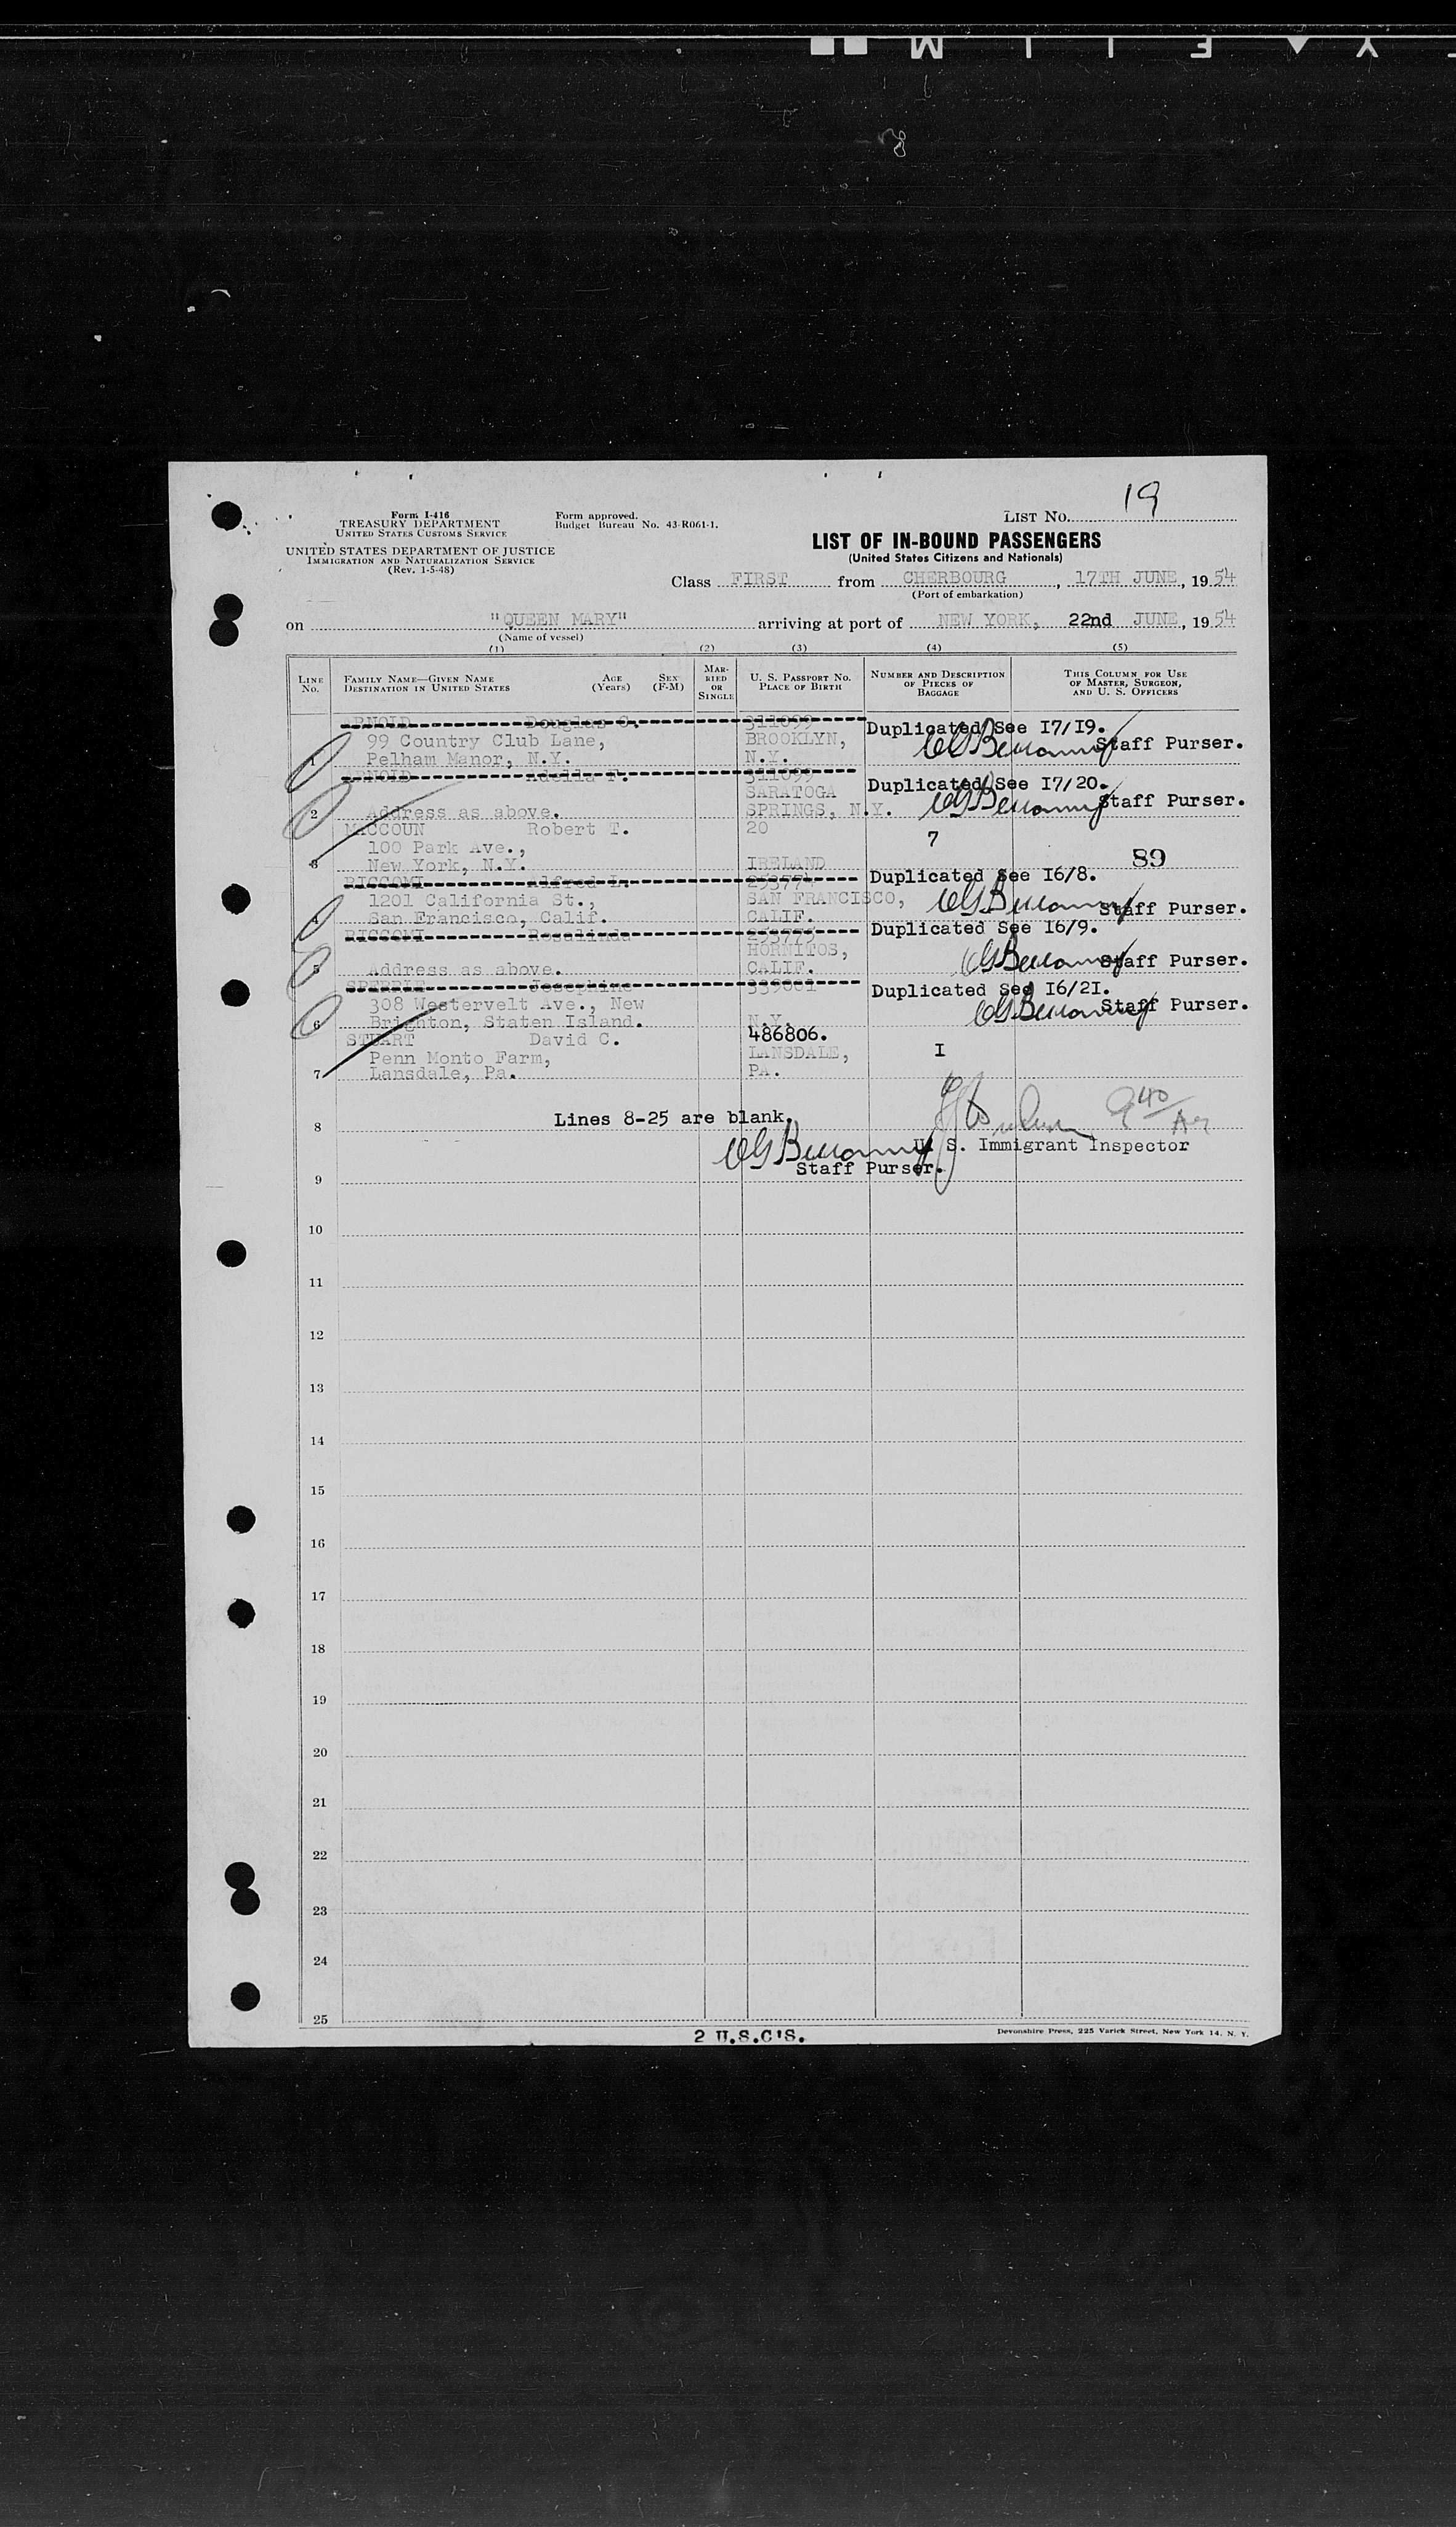 19
Form I-416
TREASURY DEPARTMENT
UNITED STATES CUSTOMS SERVICE
UNITED STATES DEPARTMENT OF JUSTICE
IMMIGRATION AND NATURALIZATION SERVICE
(Rev. 1-5-48)
Form approved.
Budget Bureau No. 43-R061-1.
LIST NO.
LIST OF IN-BOUND PASSENGERS
(United States Citizens and Nationals)
Class FIRST from CHERBOURG, 17TH JUNE, 1954
(Port of embarkation)
on "QUEEN MARY" arriving at port of NEW YORK, 22nd JUNE, 1954
(Name of vessel)
(1) (2) (3) (4) (5)
LINE NO. FAMILY NAME—GIVEN NAME DESTINATION IN UNITED STATES AGE (Years) SEX (F-M) MARRIED OR SINGLE U. S. PASSPORT NO. PLACE OF BIRTH NUMBER AND DESCRIPTION OF PIECES OF BAGGAGE THIS COLUMN FOR USE OF MASTER, SURGEON, AND U. S. OFFICERS
ARNOLD Douglas C. 311099 Duplicated See I7/I9.
99 Country Club Lane, BROOKLYN, Staff Purser.
1 Pelham Manor, N.Y. N.Y.
ARNOLD Adella F. 311099 Duplicated See I7/20.
SARATOGA
2 Address as above. SPRINGS, N.Y. Staff Purser.
MACCOUN Robert T. 20 7
100 Park Ave.,
3 New York, N.Y. IRELAND 89
RICCOMI Alfred L. 253774 Duplicated See I6/8.
1201 California St., SAN FRANCISCO,
4 San Francisco, Calif. CALIF. Staff Purser.
RICCOMI Rosalinda 253775 Duplicated See I6/9.
HORNITOS,
5 Address as above. CALIF. Staff Purser.
Josephine 339001 Duplicated See I6/2I.
308 Westervelt Ave., New Staff Purser.
6 Brighton, Staten Island. N.Y.
STUART David C. 486806.
Penn Monto Farm, LANSDALE, I
7 Lansdale, Pa. PA.
8 Lines 8-25 are blank.
940
U. S. Immigrant Inspector
Staff Purser.
9
10
11
12
13
14
15
16
17
18
19
20
21
22
23
24
25
2 U.S.C'S.
Devonshire Press, 225 Varick Street, New York 14, N. Y.